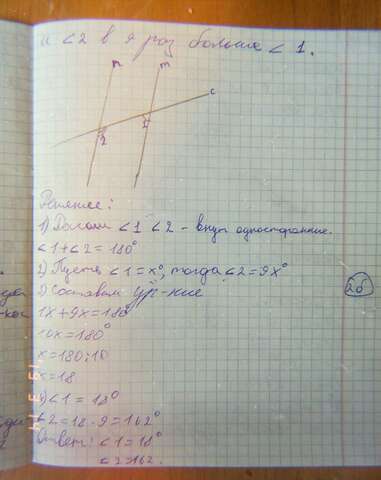 и ∠2 в 9 раз больше ∠1.
n m
c
2 1
Решение:
1) Дано ∠1 ∠2 - внут односторонние.
∠1+∠2=180°
2) Пусть ∠1=x°, тогда ∠2=9x°
3) Составим ур-ние
1x+9x=180°
10x=180°
x=180:10
x=18
∠1=18°
∠2=18·9=162°
Ответ: ∠1=18°
∠2=162.
2б